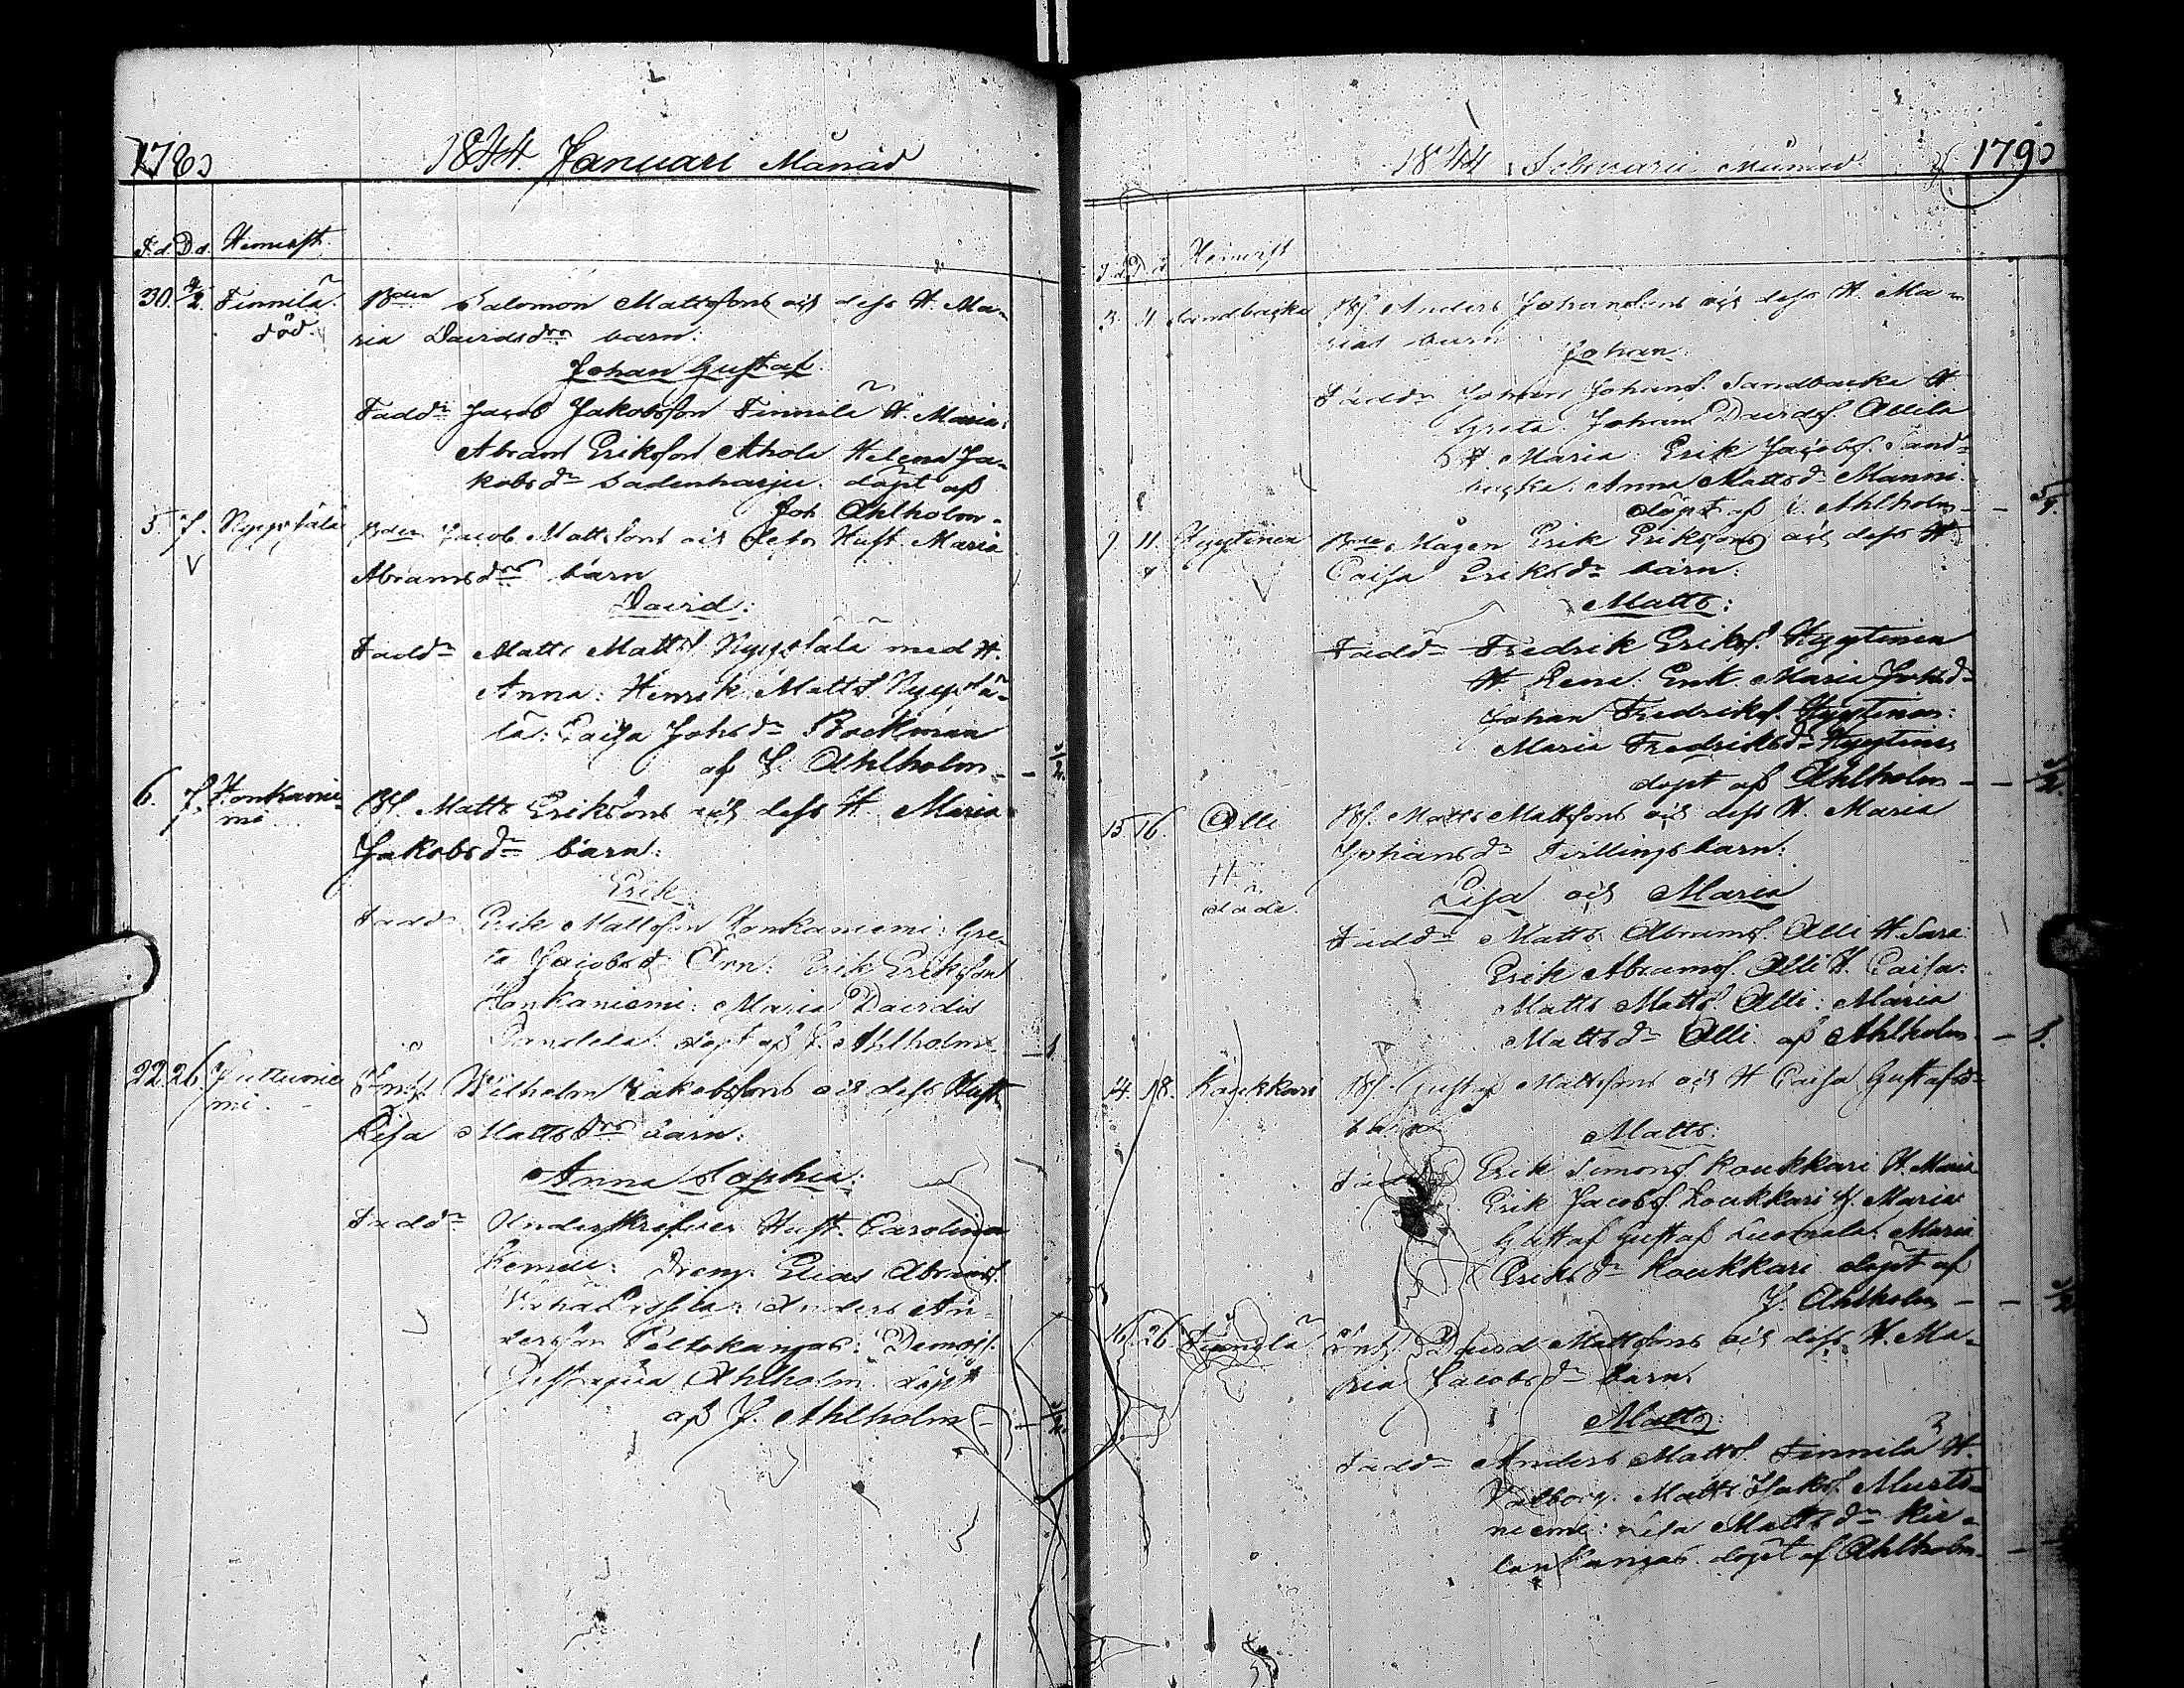 178
1844. Januari Månad
F.d. D.d. Hemvist.
30. 4/2. Finnilä. Bden Salomon Mattssons och dess H. Ma-
död. ria Davidsdrs barn:
Johan Gustaf
Faddr Jacob Jakobsson Finnilä H. Maria:
Abram Eriksson Ahola Helena Ja-
kobsdr Sadenharju. döpt af
Joh Ahlholm-
5. 7. Nyystälä Bden Jacob Mattssons och dess Hust. Maria
Abramsdrs barn
David:
Faddr Matts Matts. Nyystälä med H.
Anna: Henrik Matts. Nyystä-
lä: Caisa Johsdr Backman
af J. Ahlholm - 1/2.
6. 7. Honkanie- Bs. Matts Erikssons och dess H. Maria
mi
Jakobsdr barn:
Erik
Faddr Erik Mattsson Honkaniemi: Gre-
ta Jacobsdr Orn: Erik Eriksson
Honkaniemi: Maria Davidsd
döpt af J. Ahlholm - 1.
22. 26. Wilhelm Jakobssons och dess Hust.
mi. Lisa Mattsdrs barn:
Anna Sophia:
Faddr Hust. Carolina
Dreng. Elias Abrams.
Anders An-
dersson Peltokangas: Demois.
Ahlholm döpt
af J. Ahlholm - 1/2.
1844 Februari Månad 179
F.d. D.d. Hemvist
3. 11. Sandbacka Bs. Anders Johanssons och dess H. Ma-
rias barn
Johan:
Faddr Johan Johans. Sandbacka H
Greta. Johan Davids. Ollila
H. Maria: Erik Jacobs. Sand-
backa. Anna Mattsdr Manni-
döpt af J. Ahlholm -
9. 11. Hyytinen Bde Mågen Erik Erikssons och dess H
Caisa Eriksdr barn:
Matts:
Faddr Fredrik Eriks. Hyytinen
H. Lena: Enk. Maria Johsdr
Johan Fredriks. Hyytinen:
Maria Fredriksdr Hyytinen
döpt af Ahlholm - 1/2.
15. 16. Olli Bs. Matts Mattssons och dess H. Maria
Johansdr Tvillingsbarn:
Lisa och Maria
Faddr Matts Abrams. Olli H. Sara:
Erik Abrams. Olli H. Caisa:
Matts Matts. Olli: Maria
Mattsdr Olli. af Ahlholm - 1.
14. 18. Koukkari Bs. Gustaf Mattssons och H Caisa Gustafsdr
barn
Matts:
Erik Simons. Koukkari H. Maria
Erik Jacobs. Koukkari H. Maria
Gustaf Gustafs. Luomala: Maria
Eriksdr Koukkari döpt af
J. Ahlholm -
16. 26. Finnilä David Mattssons och dess H. Ma-
ria Jacobsdr barn
Matts:
Faddr Anders Matts. Finnilä H.
Valborg. Matts Jakobs. Murto-
niemi: Lisa Mattsdr Kie-
lenkangas. döpt af Ahlholm -